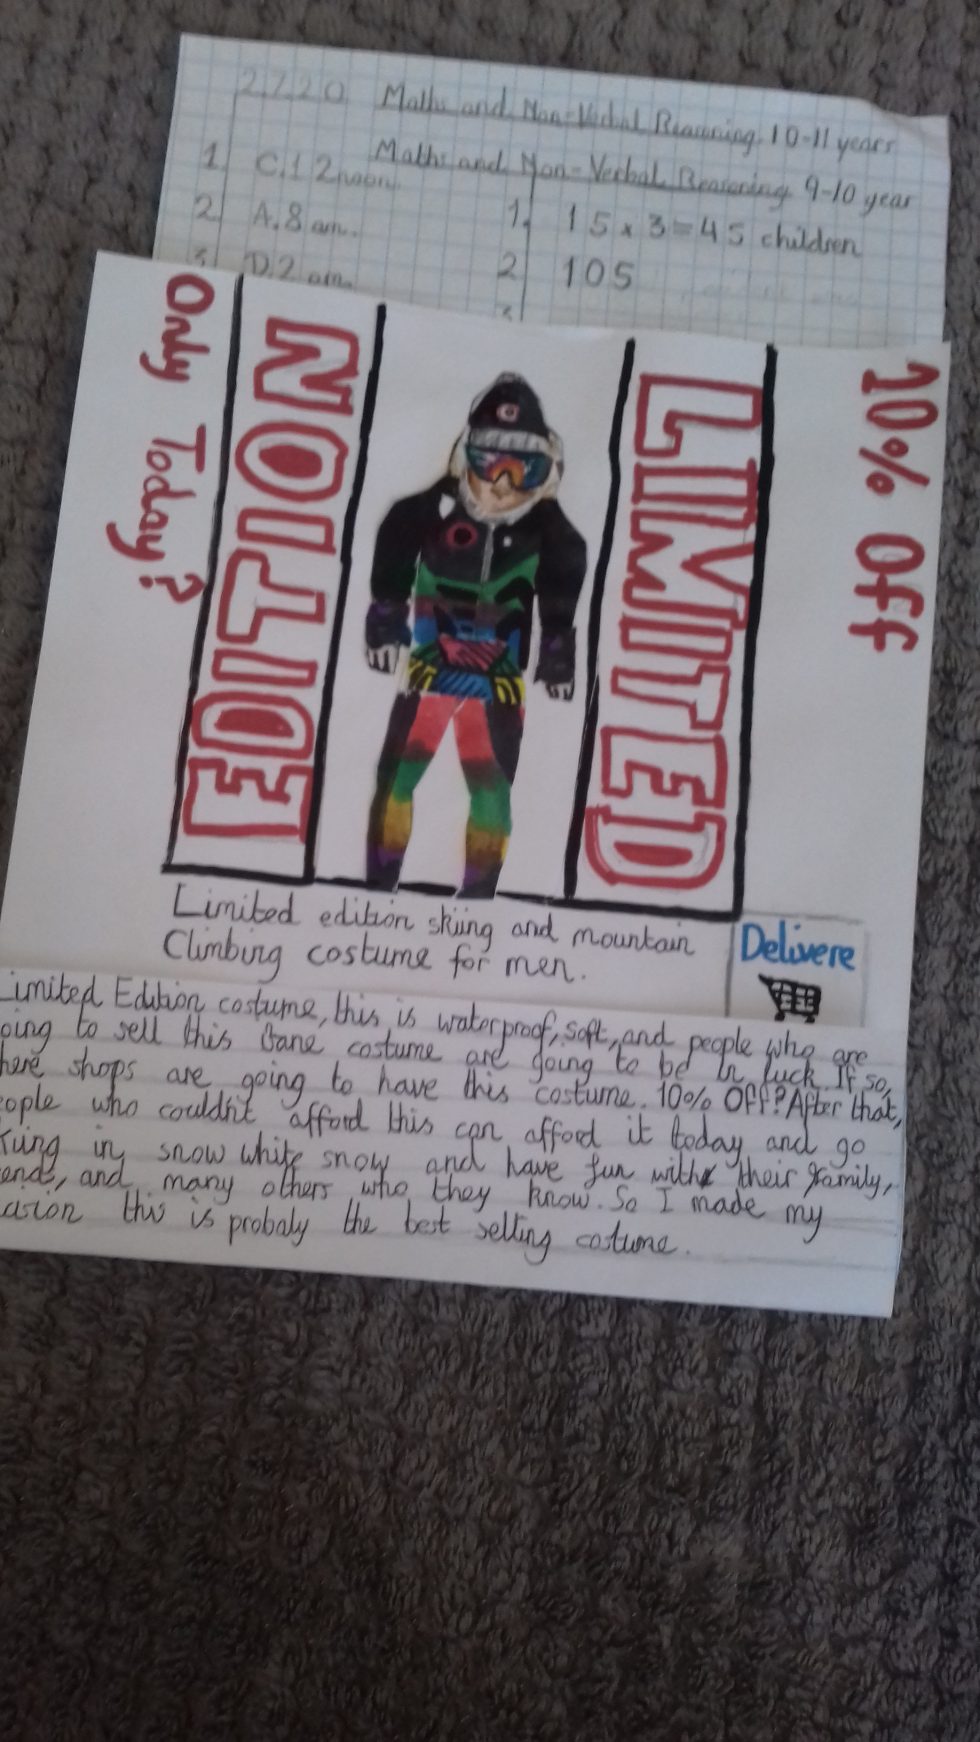 2.7.20 Maths and Non-Verbal Reasoning 10-11 years
Maths and Non-Verbal Reasoning 9-10 year
1. C.12noon.
2. A.8 am.
3. D.2 am.
1. 15 x 3=45 children
2 105
3
10% Off
LIMITED
EDITION
Only Today?
Limited edition skiing and mountain
Climbing costume for men.
Delivere
Limited Edition costume, this is waterproof, soft, and people who are
oing to sell this costume are going to be in luck. If so,
here shops are going to have this costume. 10% Off? After that,
eople who couldn't afford this can afford it today and go
kiing in snow white snow and have fun with their family,
end, and many others who they know. So I made my
cision this is probaly the best selling costume.